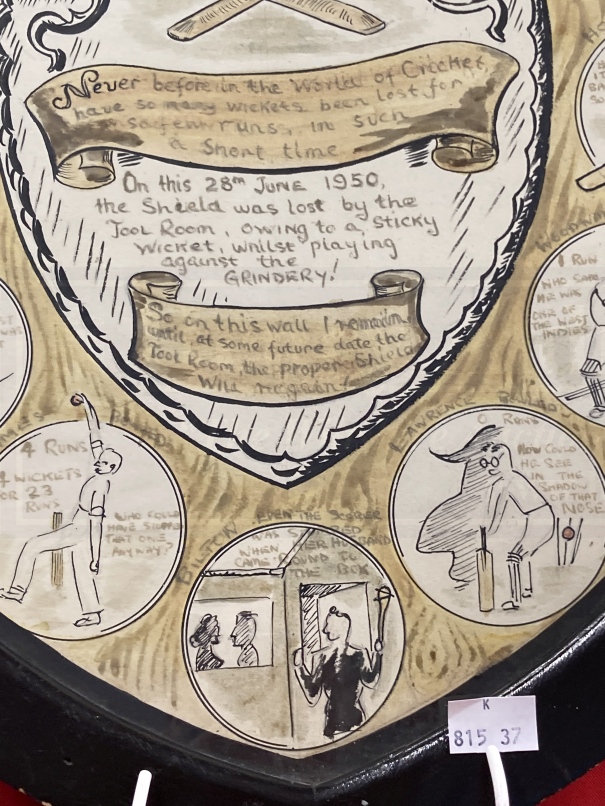 Never before in the World of Cricket,
have so many wickets been lost for
so few runs, in such
a short time
On this 28TH JUNE 1950,
the Shield was lost by the
Tool Room, owing to a sticky
wicket, whilst playing
against the
GRINDERY!
So on this wall I remain
until at some future date the
Tool Room, the proper Shield
Will regain!
1 RUN
WHO SAID
HE WAS
ONE OF
THE WEST
INDIES
4 RUNS
4 WICKETS
FOR 23
RUNS
WHO COULD
HAVE STOPPED
THAT ONE
ANYWAY?
LAWRENCE
0 RUNS
HOW COULD
HE SEE
IN THE
SHADOW
OF THAT
NOSE
EVEN THE SCORER
WAS
WHEN HER HUSBAND
CAME ROUND TO
THE BOX
K
815 37